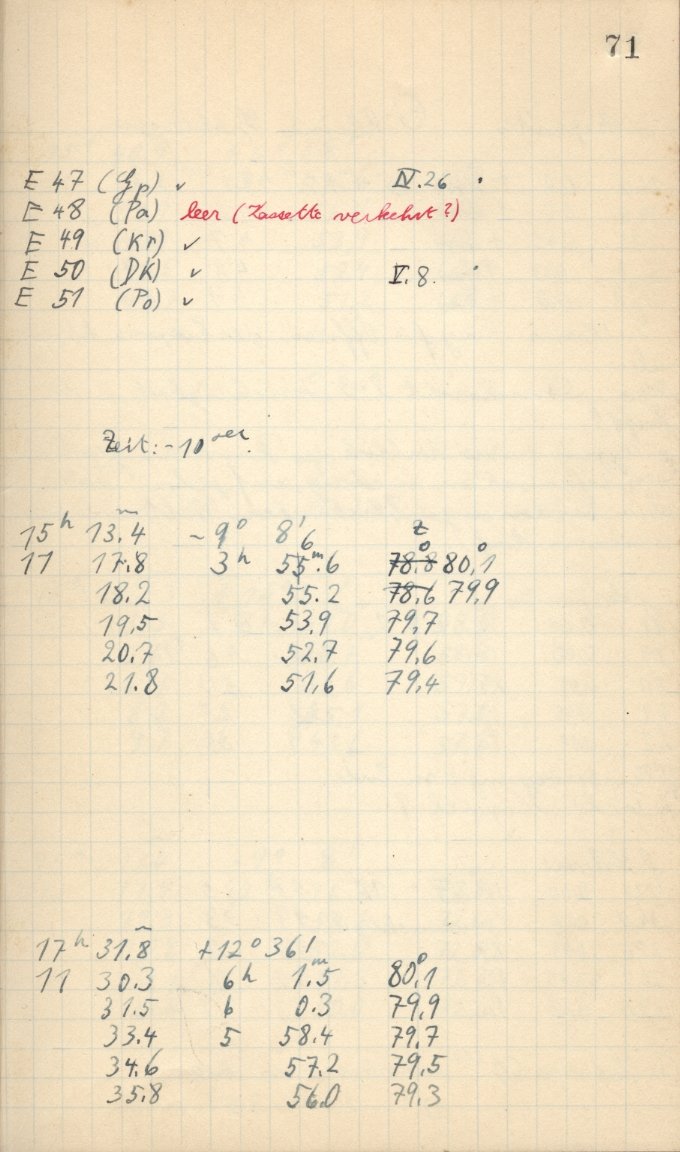 71
E 47 (Gp) ✓ IV.26 .
E 48 (Pa) leer (Kassette verkehrt?)
E 49 (Kr) ✓
E 50 (DK) ✓ V.8. .
E 51 (Po) ✓
Zeit: -10 sec.
15h 13.4m -9° 8'6 z
11 17.8 3h 55m.6 78.8° 80,1°
18.2 55.2 78.6 79,9
19,5 53,9 79,7
20.7 52,7 79,6
21.8 51,6 79,4
17h 31.8m +12° 36'
11 30.3 6h 1.5m 80,1°
31.5 6 0.3 79,9
33.4 5 58.4 79,7
34.6 57.2 79,5
35.8 56.0 79.3